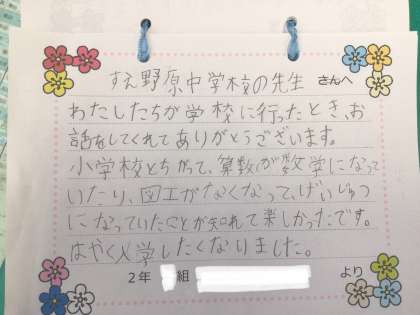 すえ野原中学校の先生 さんへ
わたしたちが学校に行ったとき、お
話をしてくれてありがとうございます。
小学校とちがって、算数が数学になって
いたり、図工がなくなって、げいじゅつ
になっていたことが知れて楽しかったです。
はやく入学したくなりました。
2年 組 より